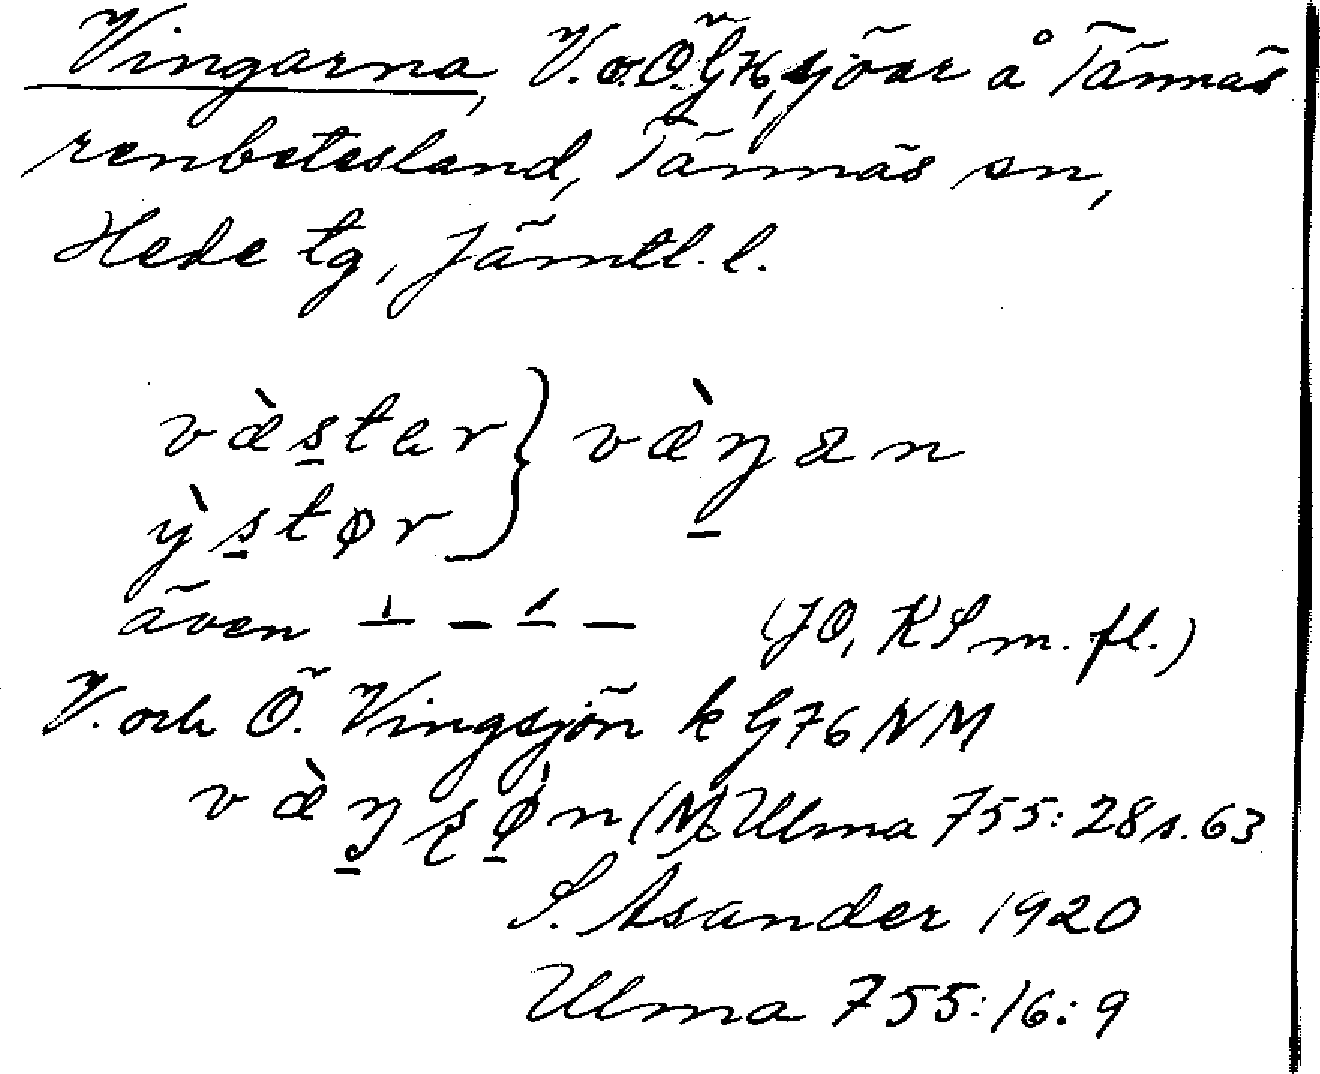 Vingarna, V. o. Ö. G76, sjöar å Tännäs
renbetesland, Tännäs sn,
Hede tg, Jämtl. l.
væ̀s̱ter } væ̀ŋ̱an
ỳs̱tør
även (JO, KS m. fl.)
V. och Ö. Vingsjön k G76NM
væ̀ŋ̱ʂø̱̀n (M) Ulma 755:28 s. 63
S. Asander 1920
Ulma 755:16:9